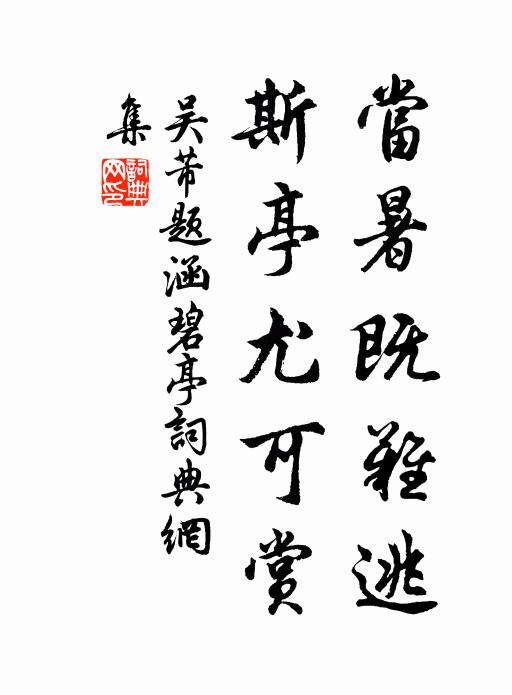 當暑既難逃
斯亭尤可賞
吴芾题涵碧亭詞典網
集
詞典網印